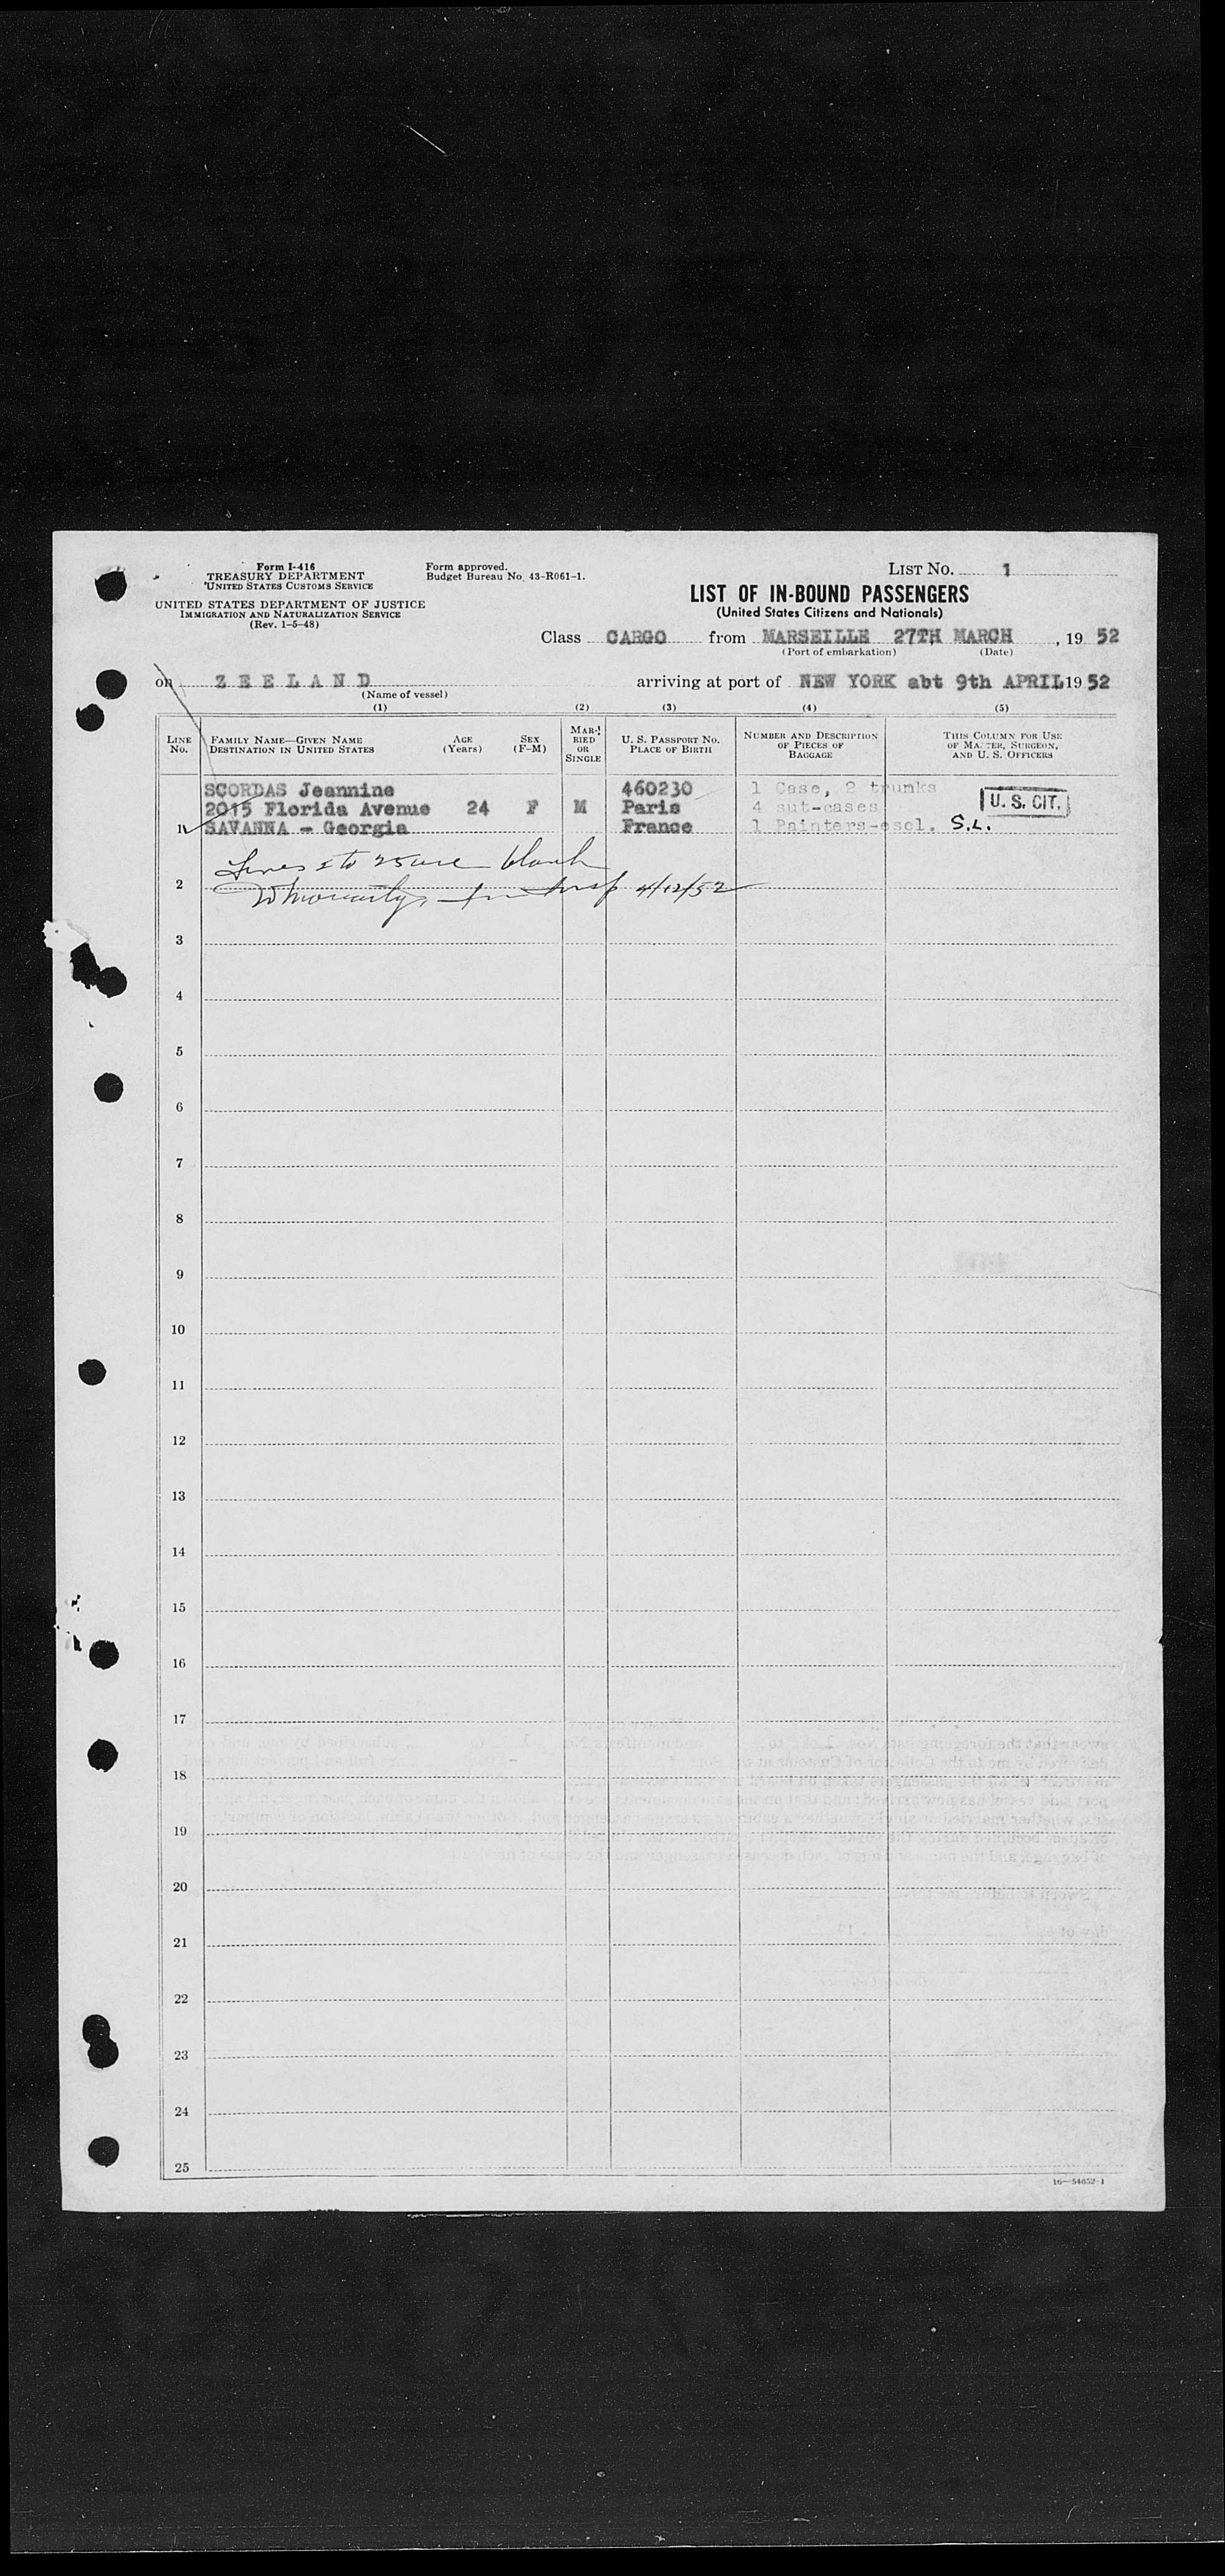 Form I-416
TREASURY DEPARTMENT
UNITED STATES CUSTOMS SERVICE
UNITED STATES DEPARTMENT OF JUSTICE
IMMIGRATION AND NATURALIZATION SERVICE
(Rev. 1-5-48)
Form approved.
Budget Bureau No. 43-R061-1.
LIST No. 1
LIST OF IN-BOUND PASSENGERS
(United States Citizens and Nationals)
Class CARGO from MARSEILLE 27TH MARCH, 19 52
(Port of embarkation) (Date)
on ZEELAND arriving at port of NEW YORK abt 9th APRIL 19 52
(Name of vessel)
(1) (2) (3) (4) (5)
LINE No. FAMILY NAME—GIVEN NAME DESTINATION IN UNITED STATES AGE (Years) SEX (F-M) MARRIED OR SINGLE U. S. PASSPORT No. PLACE OF BIRTH NUMBER AND DESCRIPTION OF PIECES OF BAGGAGE THIS COLUMN FOR USE OF MASTER, SURGEON, AND U. S. OFFICERS
SCORDAS Jeannine 460230 1 Case, 2 trunks
2015 Florida Avenue 24 F M Paris 4 sut-cases U. S. CIT.
1 SAVANNA - Georgia France 1 Painters-esel. S.L.
Lines 2 to 25 are blank
2 Insp 4/12/52
3
4
5
6
7
8
9
10
11
12
13
14
15
16
17
18
19
20
21
22
23
24
25
16—54652-1